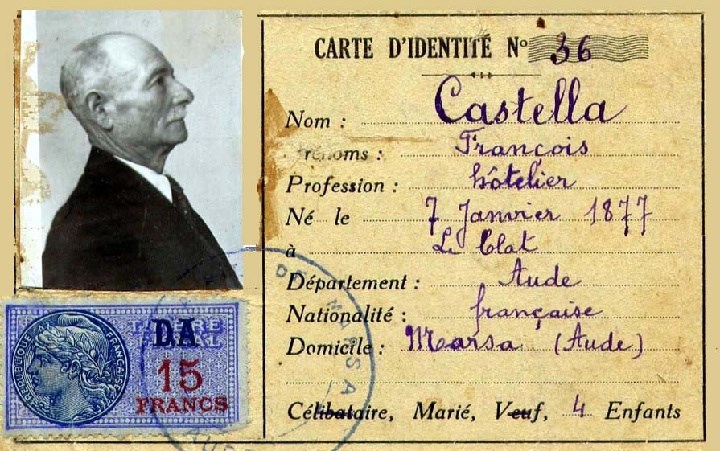 CARTE D'IDENTITÉ N° 36
Nom : Castella
Prénoms : François
Profession : hôtelier
Né le 7 Janvier 1877
à Le Clat
Département : Aude
Nationalité : française
Domicile : Marsa (Aude)
Célibataire, Marié, Veuf, 4 Enfants
DA
15
FRANCS
DE MARSA
AUDE